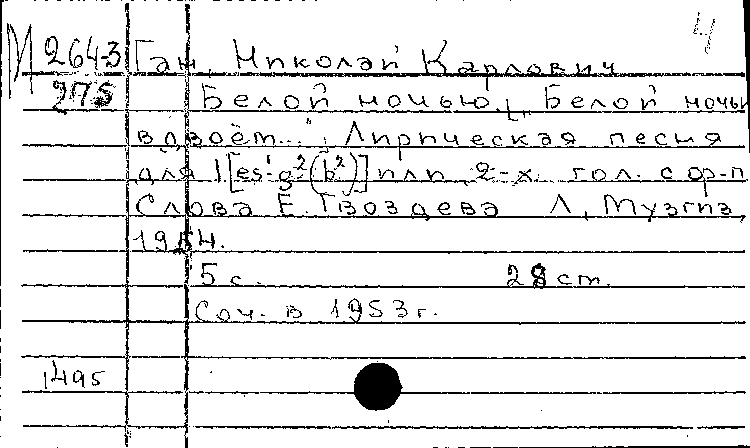 4
М 264-3 Ган, Николай Карлович
275 Белой ночью. [„Белой ночью
вдвоём..."] Лирическая песня
для 1 [es¹-g²(b²)] или 2-х гол. с ф-п
Слова Е. Гвоздева Л, Музгиз,
1954.
5 с. 28 cm.
Соч. в 1953 г.
1495